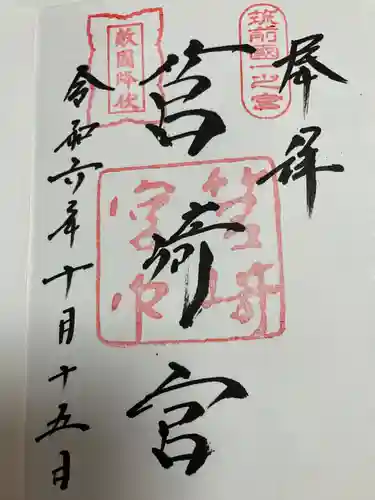 奉拝
筑前國一之宮
筥崎宮
筥崎宮印
敵国降伏
令和六年十月十五日